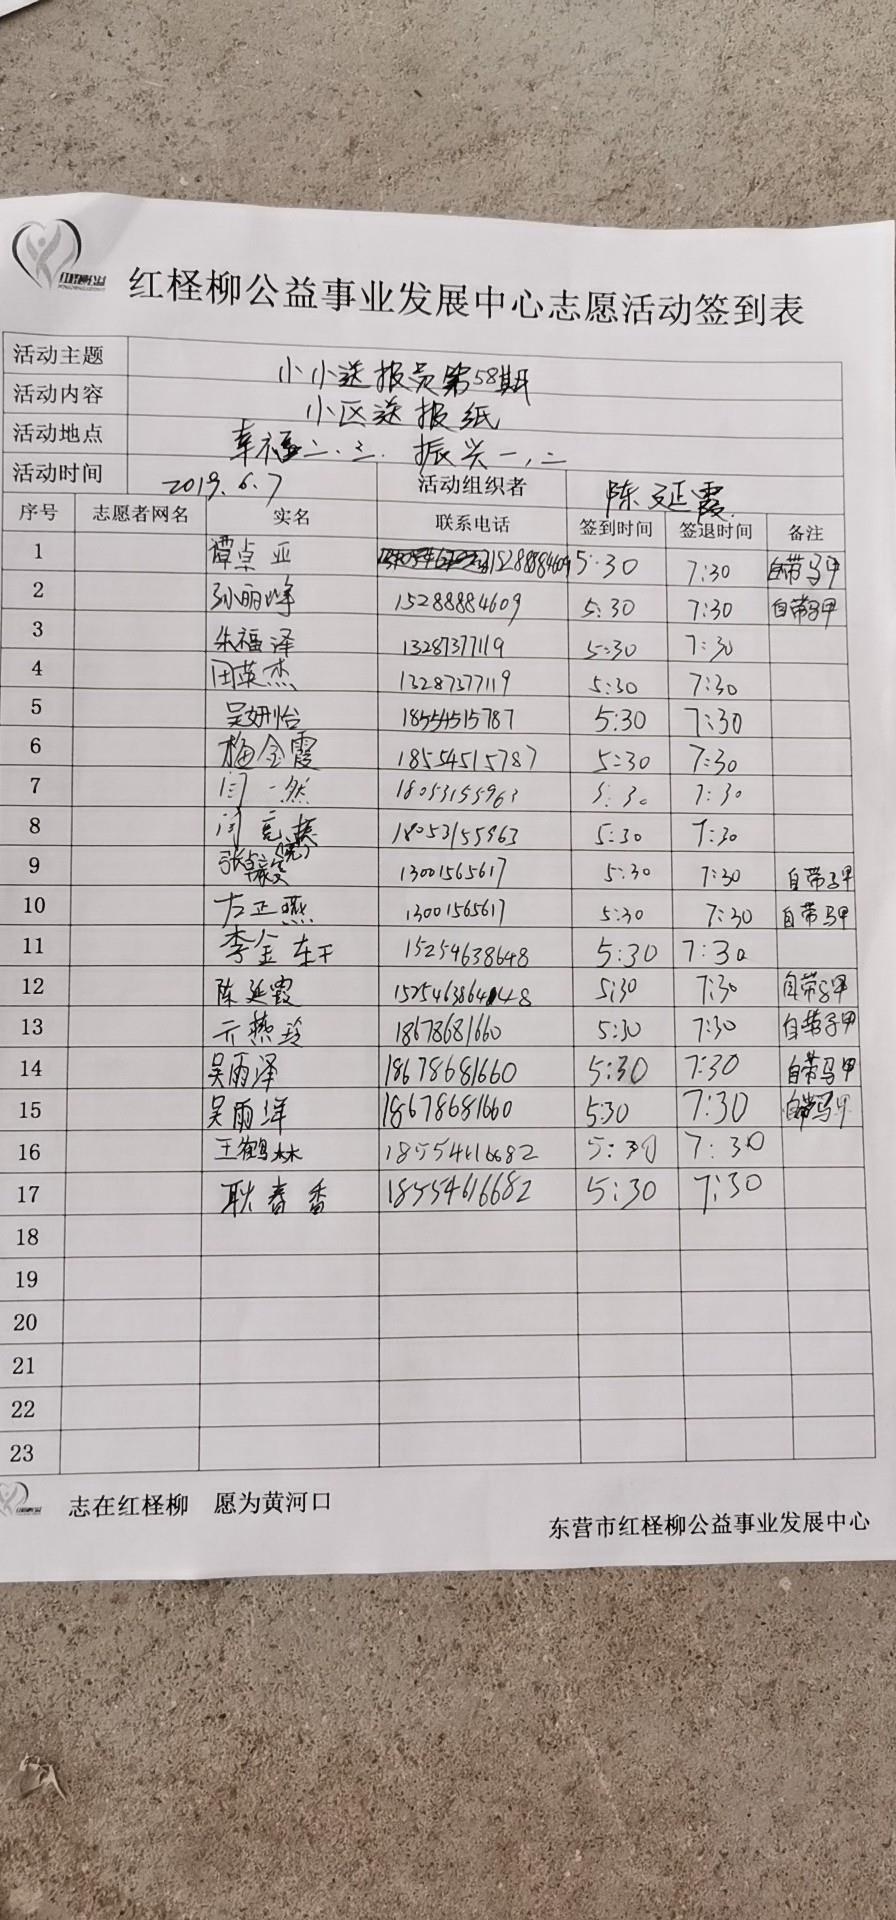 红柽柳公益
红柽柳公益事业发展中心志愿活动签到表
活动主题 小小送报员第58期
活动内容 小区送报纸
活动地点 幸福二、三. 振兴一,二
活动时间 2019.6.7 活动组织者 陈延霞
序号 志愿者网名 实名 联系电话 签到时间 签退时间 备注
1 谭卓亚 15288884609 5:30 7:30 自带马甲
2 孙丽峰 15288884609 5:30 7:30 自带马甲
3 朱福泽 13287377119 5:30 7:30
4 田英杰 13287377119 5:30 7:30
5 吴妍怡 18554515787 5:30 7:30
6 梅金霞 18554515787 5:30 7:30
7 闫一然 18053155963 5:30 7:30
8 闫 18053155963 5:30 7:30
9 张 13001565617 5:30 7:30 自带马甲
10 左正燕 13001565617 5:30 7:30 自带马甲
11 李金轩 15254638648 5:30 7:30
12 陈延霞 15254638648 5:30 7:30 自带马甲
13 亓燕玲 18678681660 5:30 7:30 自带马甲
14 吴雨泽 18678681660 5:30 7:30 自带马甲
15 吴雨洋 18678681660 5:30 7:30 自带马甲
16 王鹤霖 18554616682 5:30 7:30
17 耿春香 18554616682 5:30 7:30
18
19
20
21
22
23
志在红柽柳 愿为黄河口
东营市红柽柳公益事业发展中心